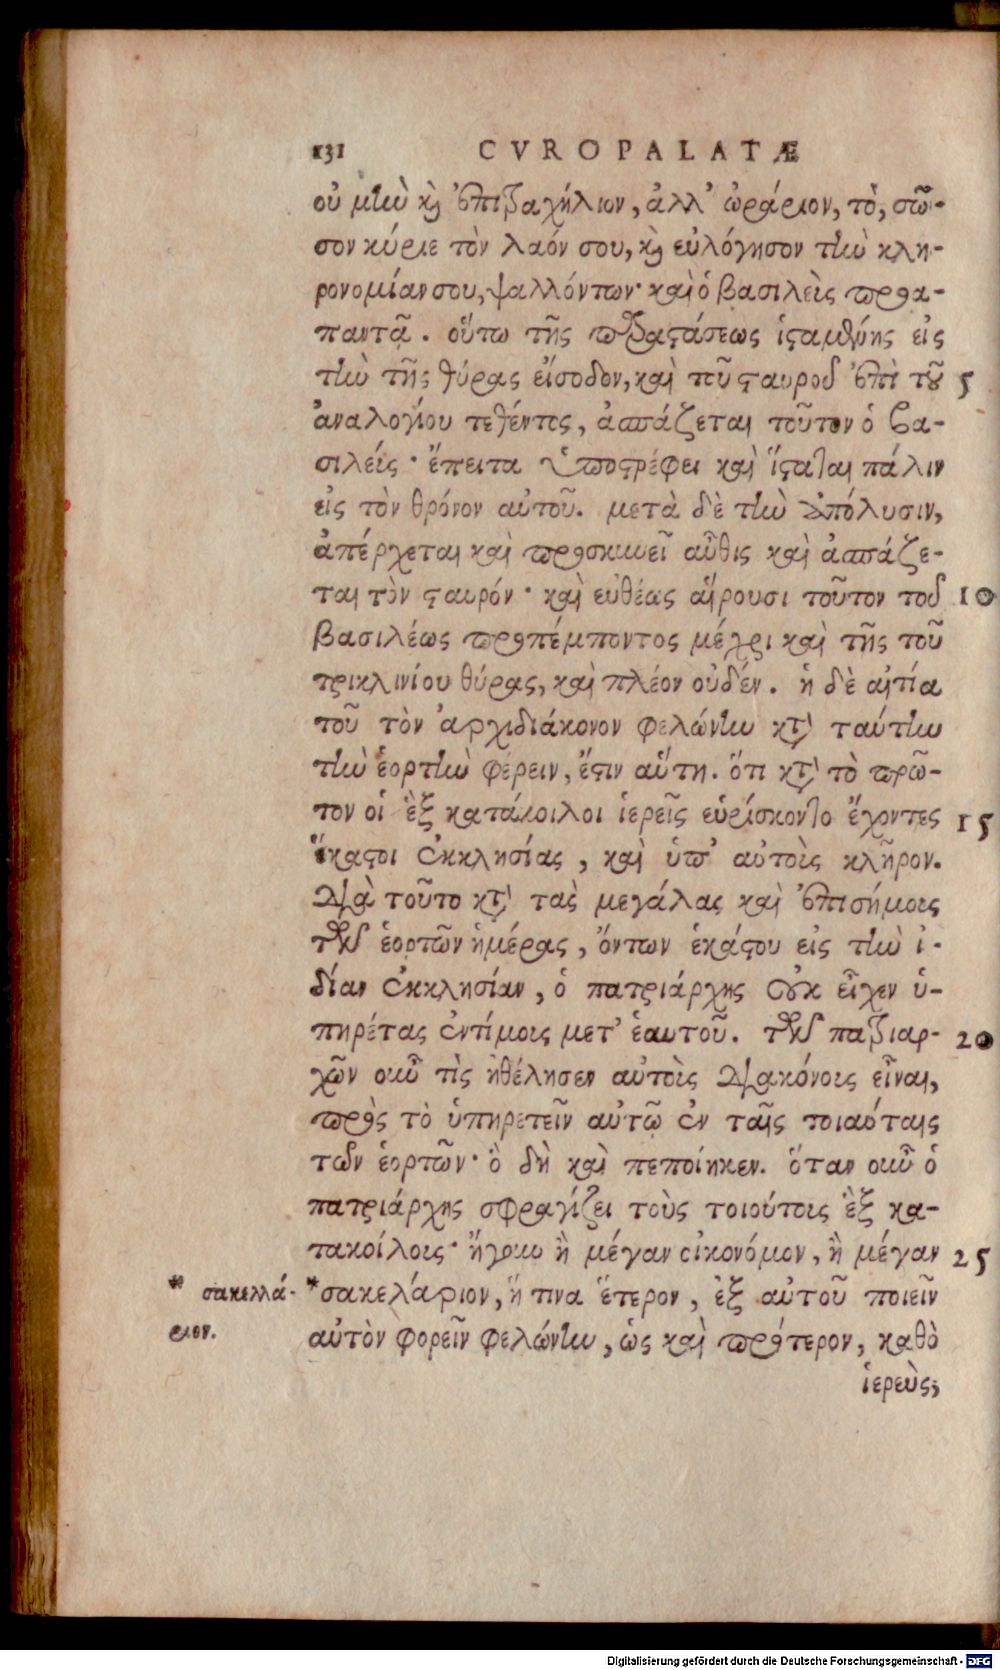 131 CVROPALATÆ
οὐ μὴν καὶ ἐπιτραχήλιον, ἀλλ' ὠράριον, τὸ, σῶ-
σον κύριε τὸν λαόν σου, καὶ εὐλόγησον τὴν κλη-
ρονομίαν σου, ψαλλόντων· καὶ ὁ βασιλεὺς προα-
παντᾷ. οὕτω τῆς παραστάσεως ἱσταμένης εἰς
τὴν τῆς θύρας εἴσοδον, καὶ τοῦ σταυροῦ ἐπὶ τοῦ 5
ἀναλογίου τεθέντος, ἀσπάζεται τοῦτον ὁ βα-
σιλεύς· ἔπειτα ὑποστρέφει καὶ ἵσταται πάλιν
εἰς τὸν θρόνον αὐτοῦ. μετὰ δὲ τὴν ἀπόλυσιν,
ἀπέρχεται καὶ προσκυνεῖ αὖθις καὶ ἀσπάζε-
ται τὸν σταυρόν· καὶ εὐθέως αἴρουσι τοῦτον τοῦ 10
βασιλέως προπέμποντος μέχρι καὶ τῆς τοῦ
τρικλινίου θύρας, καὶ πλέον οὐδέν. ἡ δὲ αἰτία
τοῦ τὸν ἀρχιδιάκονον φελώνην κατὰ ταύτην
τὴν ἑορτὴν φέρειν, ἔστιν αὕτη. ὅτι κατὰ τὸ πρῶ-
τον οἱ ἐξ κατάκοιλοι ἱερεῖς εὑρίσκοντο ἔχοντες 15
ἕκαστοι ἐκκλησίας, καὶ ὑπ' αὐτοὺς κλῆρον.
διὰ τοῦτο κατὰ τὰς μεγάλας καὶ ἐπισήμους
τῶν ἑορτῶν ἡμέρας, ὄντων ἑκάστου εἰς τὴν ἰ-
δίαν ἐκκλησίαν, ὁ πατριάρχης οὐκ εἶχεν ὑ-
πηρέτας ἐντίμους μετ' ἑαυτοῦ. τῶν πατριαρ- 20
χῶν οὖν τὶς ἠθέλησεν αὐτοὺς διακόνους εἶναι,
πρὸς τὸ ὑπηρετεῖν αὐτῷ ἐν ταῖς τοιαύταις
τῶν ἑορτῶν· ὃ δὴ καὶ πεποίηκεν. ὅταν οὖν ὁ
πατριάρχης σφραγίζει τοὺς τοιούτους ἐξ κα-
τακοίλους· ἤγουν ἢ μέγαν οἰκονόμον, ἢ μέγαν 25
* σακελλά- *σακελάριον, ἤ τινα ἕτερον, ἐξ αὐτοῦ ποιεῖν
ριον. αὐτὸν φορεῖν φελώνην, ὡς καὶ πρότερον, καθὸ
ἱερεὺς;
Digitalisierung gefördert durch die Deutsche Forschungsgemeinschaft - DFG